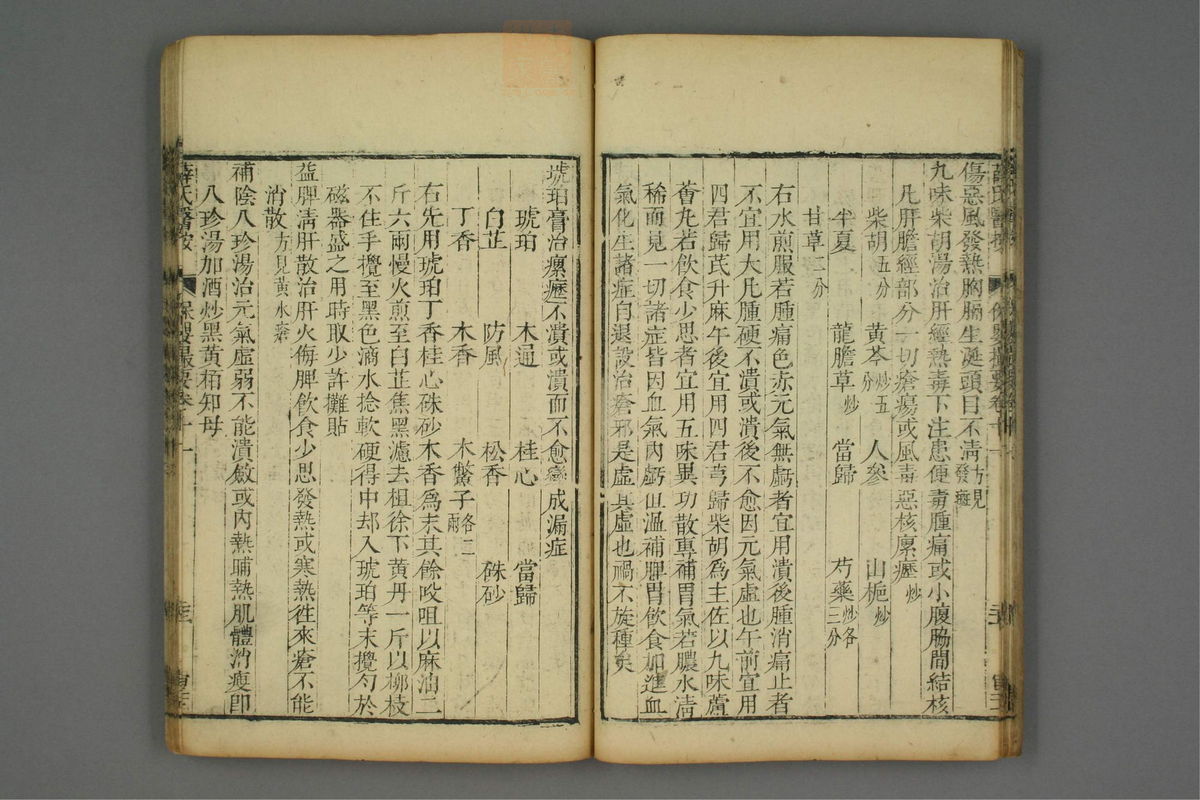 傷惡風發熱胸膈生涎頭目不清方見發癍
九味柴胡湯治肝經熱毒下注患便毒腫痛或小腹脇間結核
凡肝膽經部分一切瘡瘍或風毒惡核瘰癧
柴胡五分 黃芩炒五分 人參 山梔炒
半夏 龍膽草炒 當歸炒 芍藥炒各三分
甘草二分
右水煎服若腫痛色赤元氣無虧者宜用潰後腫消痛止者
不宜用大凡腫硬不潰或潰後不愈因元氣虛也午前宜用
四君歸芪升麻午後宜用四君芎歸柴胡為主佐以九味蘆
薈丸若飲食少思者宜用五味異功散專補胃氣若膿水清
稀而見一切諸症皆因血氣內虧但溫補脾胃飲食加進血
氣化生諸症自退設治瘡邪是虛其虛也禍不旋種矣
琥珀膏治瘰癧不潰或潰而不愈變成漏症
琥珀 木通 桂心 當歸
白芷 防風 松香 硃砂
丁香 木香 木鱉子各二兩
右先用琥珀丁香桂心硃砂木香為末其餘㕮咀以麻油二
斤六兩慢火煎至白芷焦黑濾去柤徐下黃丹一斤以柳枝
不住手攪至黑色滴水捻軟硬得中却入琥珀等末攪勻於
磁器盛之用時取少許攤貼
益脾清肝散治肝火侮脾飲食少思發熱或寒熱徃來瘡不能
消散方見黃水瘡
補陰八珍湯治元氣虛弱不能潰斂或內熱晡熱肌體消瘦即
八珍湯加酒炒黑黃栢知母
薛氏醫按
保嬰最要卷十一